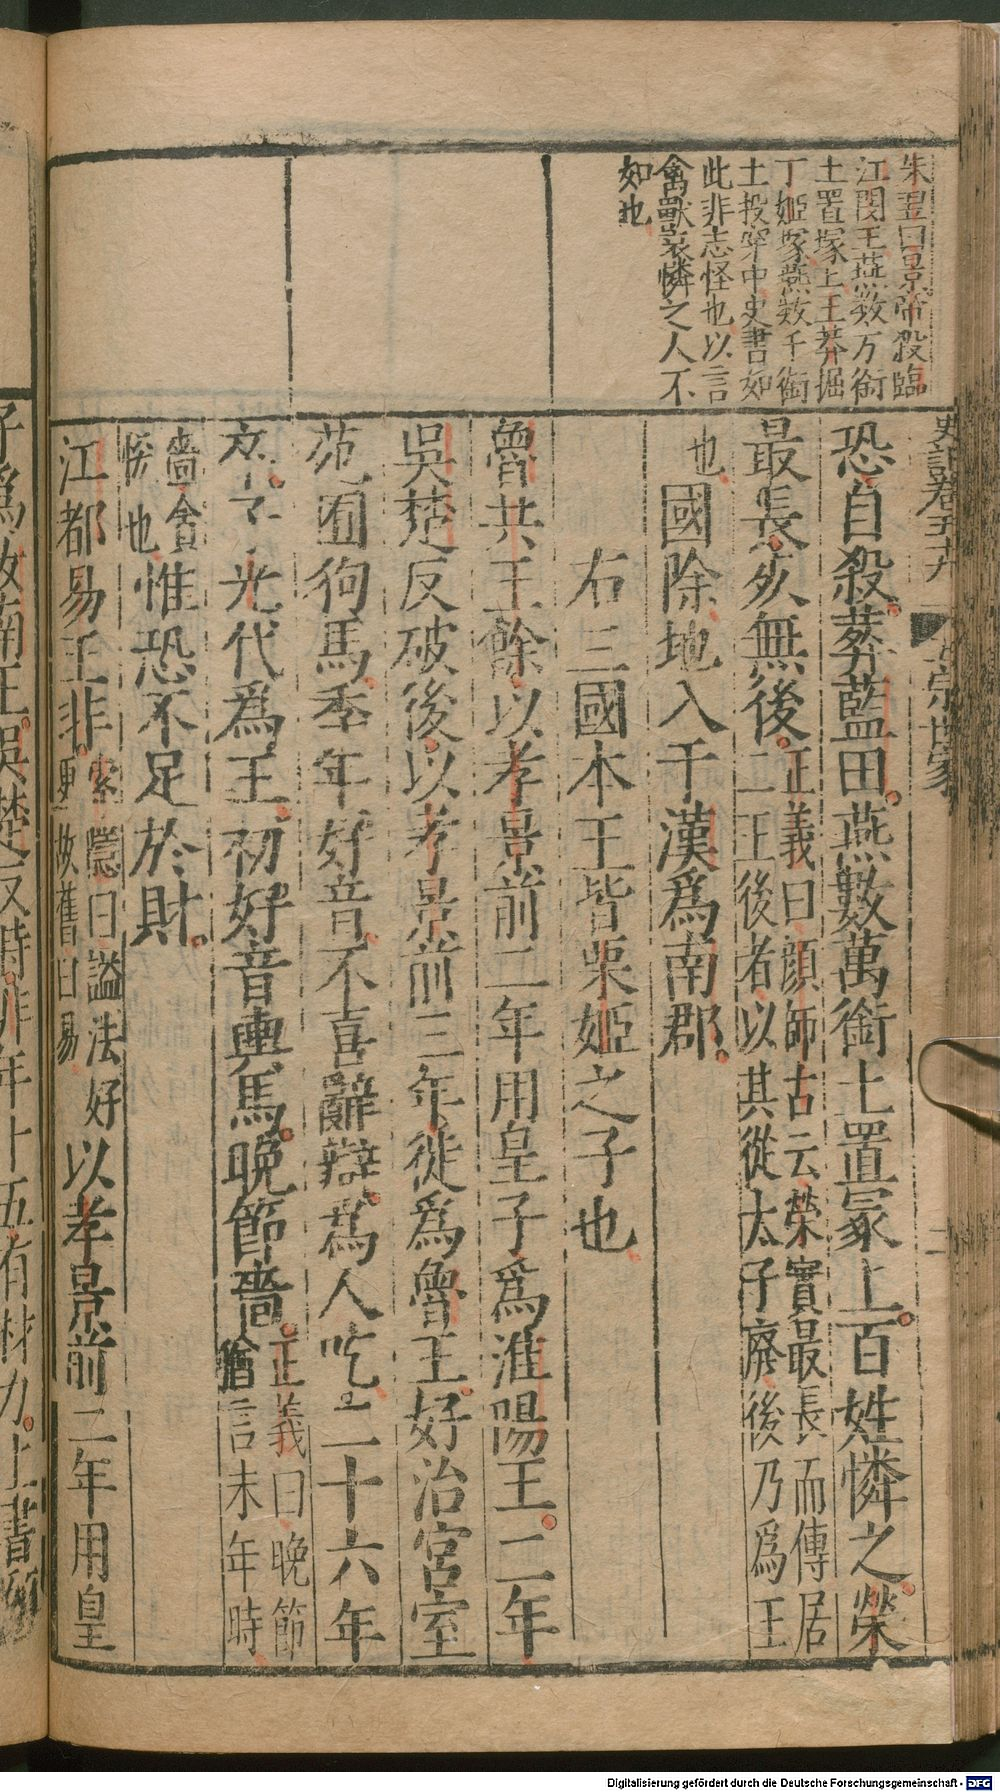 朱翌曰景帝殺臨
江閔王燕数万銜
土置塚上王莽掘
丁姬塚燕数千銜
土投穿中史書如
此非志怪也以言
禽獸哀憐之人不
如也
史記卷五十九 五宗世家 二
恐自殺葬藍田燕數萬銜土置冢上百姓憐之榮
最長死無後正義曰顔師古云榮實最長而傳居二王後者以其從太子廢後乃爲王
也國除地入于漢爲南郡
右三國本王皆栗姬之子也
魯共王餘以孝景前二年用皇子爲淮陽王二年
吳楚反破後以孝景前三年徙爲魯王好治宮室
苑囿狗馬季年好音不喜辭辯爲人吃二十六年
卒子光代爲王初好音輿馬晚節嗇正義曰晚節猶言末年時
嗇貪悋也惟恐不足於財
江都易王非索隱曰謚法好更故舊曰易以孝景前二年用皇
子爲汝南王吳楚反時非年十五有材力上書願
Digitalisierung gefördert durch die Deutsche Forschungsgemeinschaft - DFG